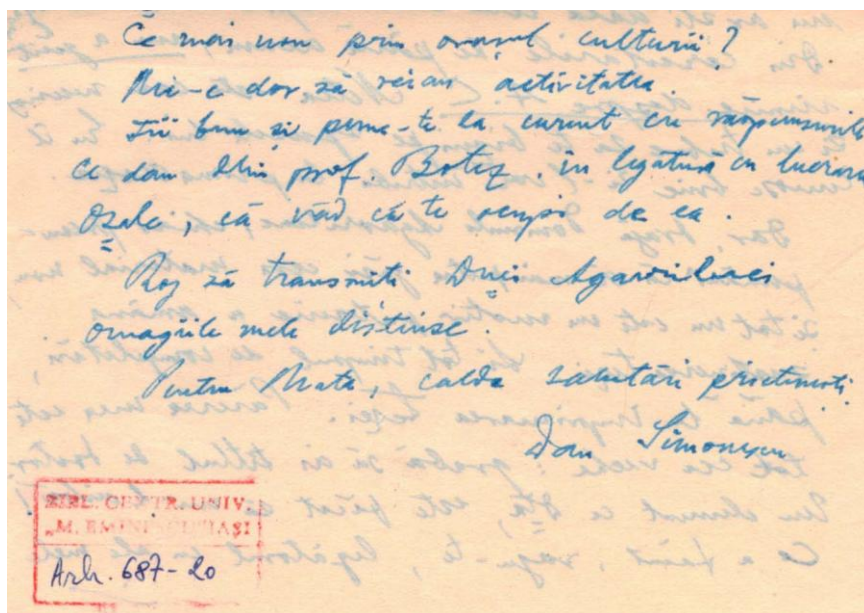 Ce mai nou prin orașul culturii?
Mi-e dor să reiau activitatea.
Fii bun și pune-te la curent cu răspunsurile
ce dau Dlui prof. Botez, în legătură cu lucrarea
Dsale, că văd că te ocupi de ea.
Rog să transmiți Dnei Agavriloaei
omagiile mele distinse.
Pentru Mata, calde salutări prietenești.
Dan Simonescu
BIBL. CENTR. UNIV.
„M. EMINESCU" IAȘI
Arh. 687-20